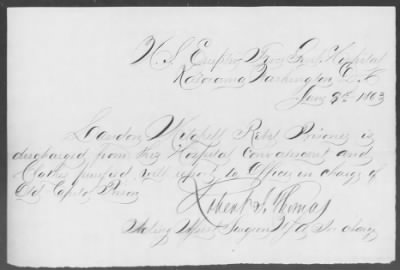 U.S. Eruptive Fever Genl. Hospital
Washington D.C.
Jany 9th 1863
Landon Mitchell Rebel Prisoner is
discharged from this Hospital convalescent and
Clothes purified will report to Officer in charge of
Old Capitol Prison
Robert J. Thomas
Acting Asst Surgeon U.S.A. In charge